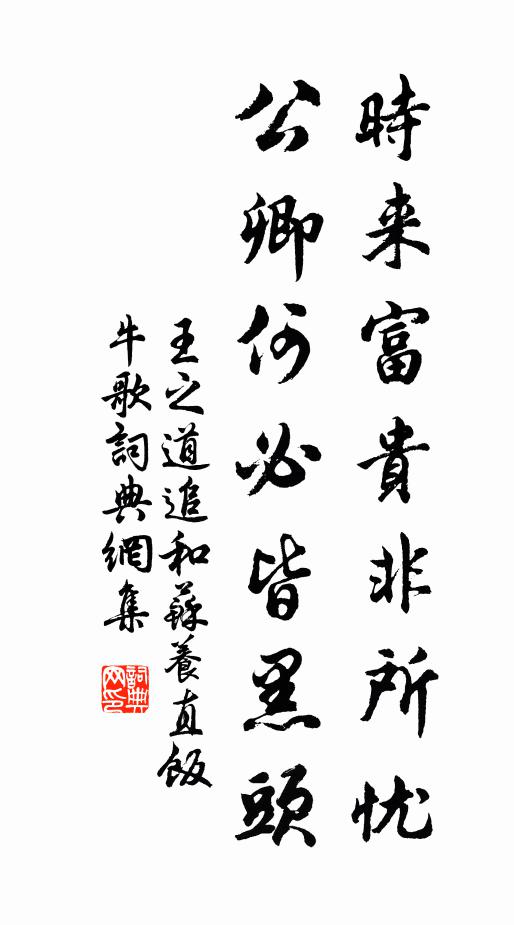 時来富貴非所忧
公卿何必皆黑頭
王之道追和蘇養直飯
牛歌詞典網集
詞典
网印